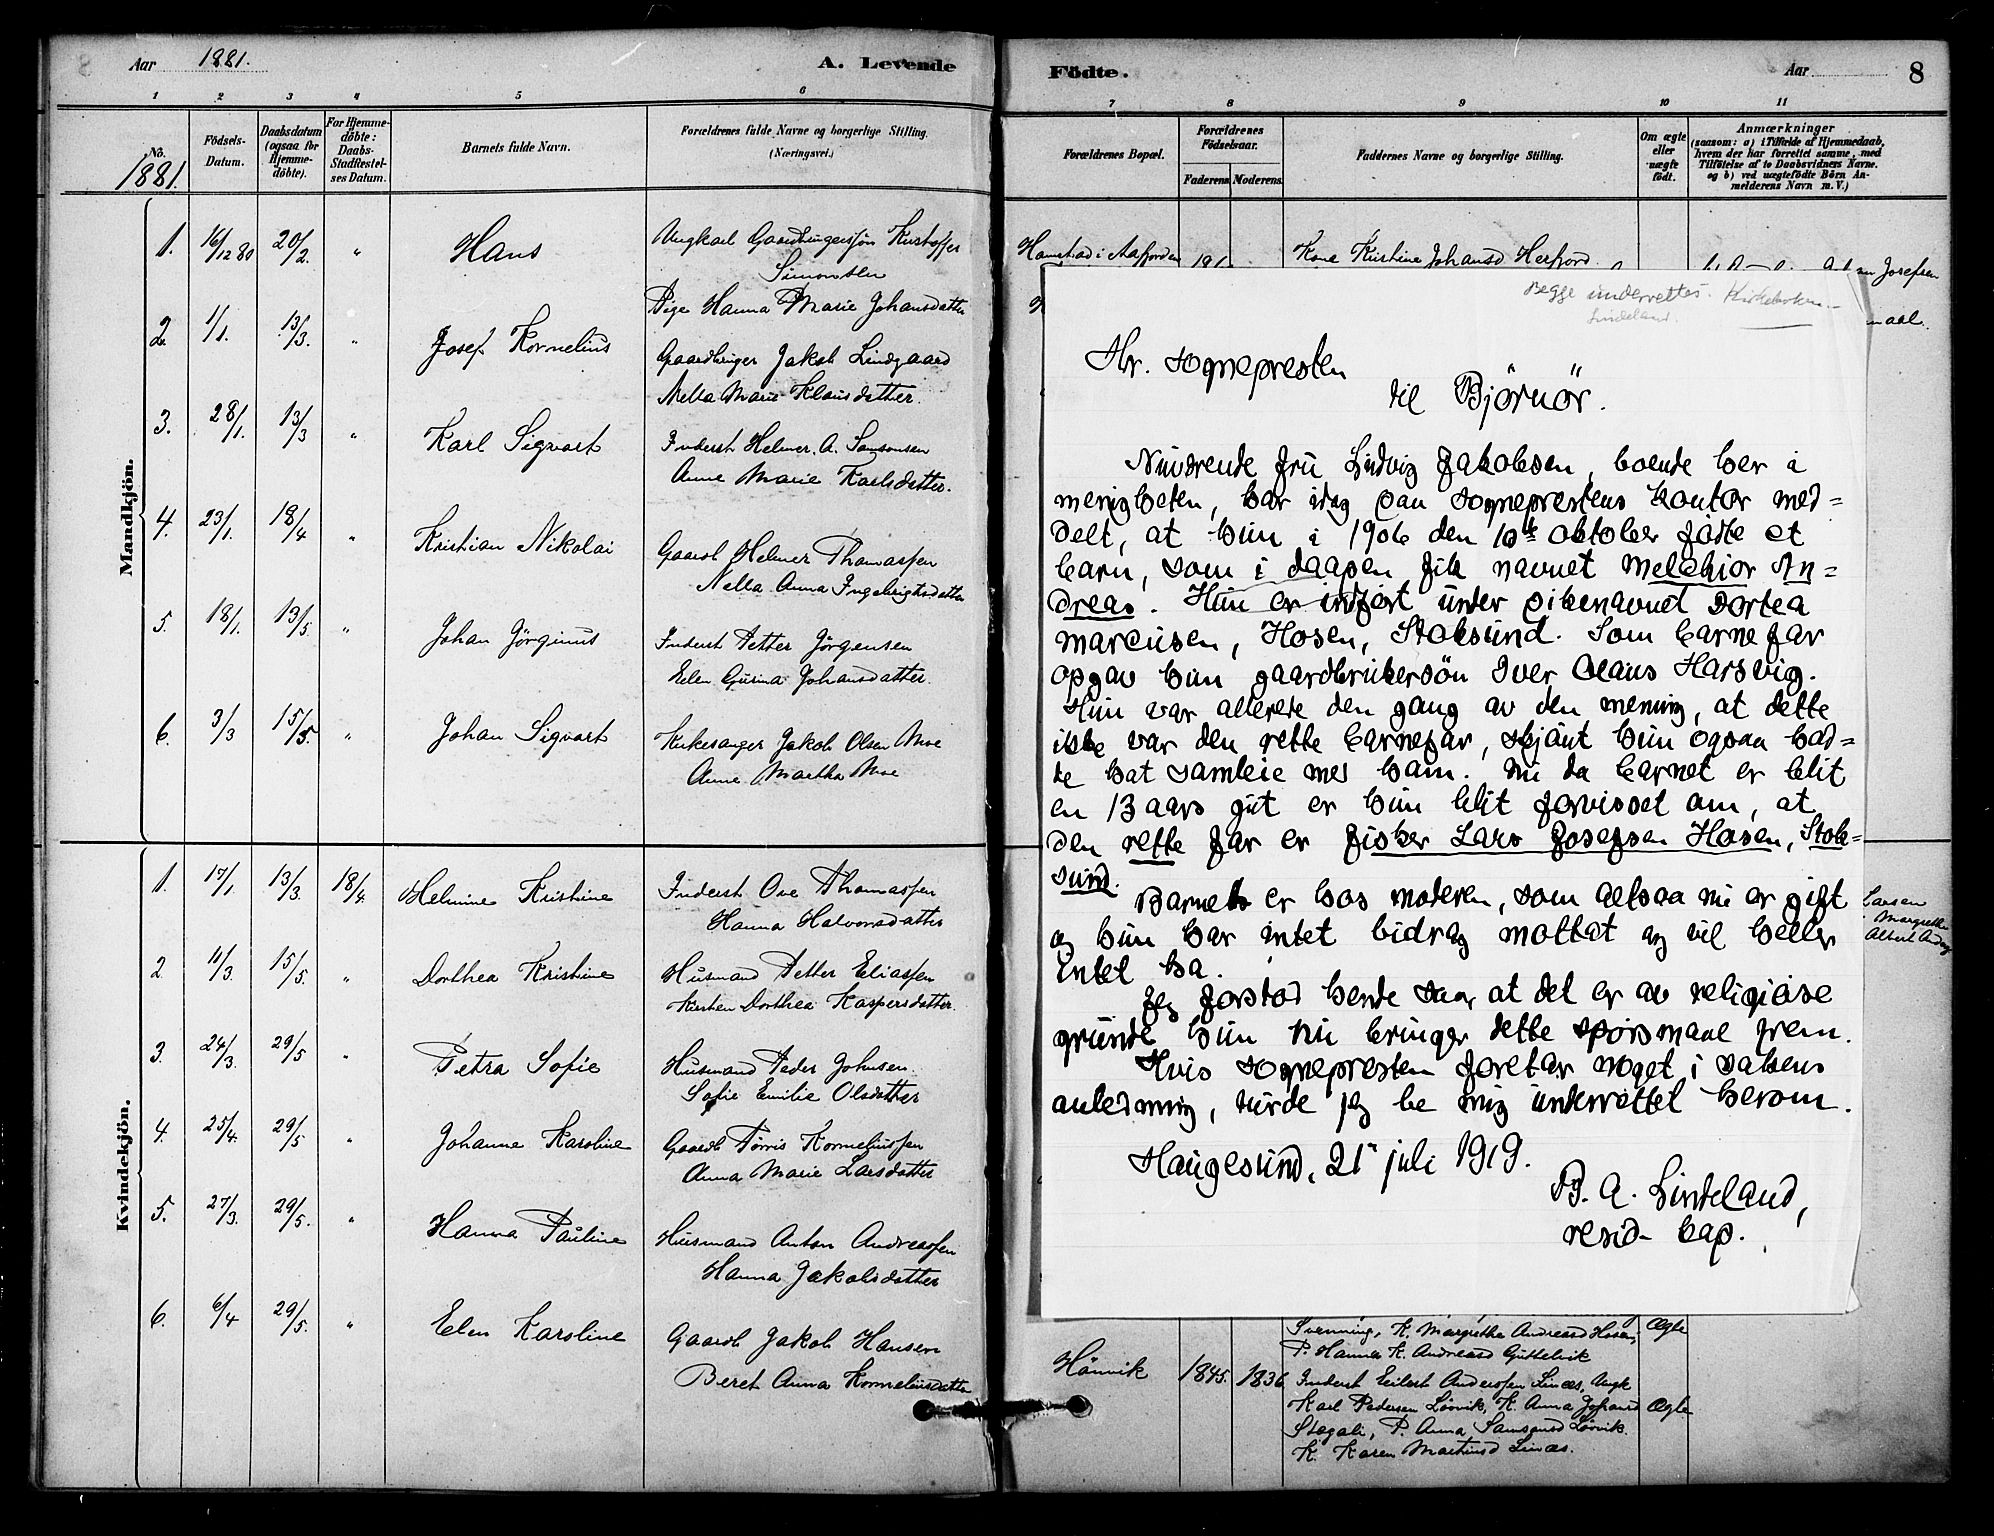 8 Aar 1881. A. Levende
1 2 3 4 5 6
No. Födsels-Datum. Daabsdatum (ogsaa for Hjemme-döbte). For Hjemme-döbte: Daabs-Stadfestel-ses Datum. Barnets fulde Navn. Forældrenes fulde Navne og borgerlige Stilling. (Næringsvei.)
1881.
Mandkjön.
1. 16/12 80 20/2. " Hans Ungkarl Gaardbrugersøn Kristoffer
Simonsen
Pige Hanna Marie Johansdatter
2. 1/1. 13/3. " Josef Kornelius Gaardbruger Jakob Lindgaard
Nella Marie Klausdatter.
3. 28/1. 13/3 " Karl Sigvart Inderst Helmer. A. Samsonsen
Anne Marie Karlsdatter.
4. 23/1. 18/4 " Kristian Nikolai Gaardb Helmer Thomassen
Nella Anna Ingebrigtsdatter
5. 18/1. 13/5. " Johan Jörginus Inderst Petter Jörgensen
Elen Gurina Johansdatter.
6. 3/3 15/5. " Johan Sigvart Kirkesanger Jakob Olsen Moe
Anne Martha Moe
Kvindekjön.
1. 17/1. 13/3. 18/4 Helmine Kristine Inderst Ove Thomassen
Hanna Halvorsdatter
2. 11/3 15/5. " Dorthea Kristine Husmand Petter Eliassen
Kirsten Dorthea Kaspersdatter.
3. 24/3. 29/5 " Petra Sofie Husmand Peder Johnsen.
Sofie Emilie Olsdatter
4. 25/4. 29/5 " Johanne Karoline Gaardb Tørris Korneliussen
Anna Marie Larsdatter
5. 27/3. 29/5. " Hanna Pauline Husmand Anton Andreassen
Hanna Jakobsdatter
6. 6/4 29/5. " Elen Karoline Gaardb Jakob Hansen
Beret Anna Kornelius­datter
Födte. Aar 8
7 8 9 10 11
Forældrenes Bopæl. Forældrenes Födselsaar. Faderens Moderens. Faddernes Navne og borgerlige Stilling. Om ægte eller uægte födt. Anmærkninger (saasom: a) i Tilfælde af Hjemmedaab, hvem der har forrettet samme, med Tilföielse af to Daabsvidners Navne. og b) ved uægtefödte Börn Anmelderens Navn m. V.)
Hamstad i Aafjorden Kone Kristine Johansd Herfjord Josefsen
Begge underrettes. Kirkeboken.
Lindeland.
Hr. sognepresten
til Björnör.
Nuværende fru Ludvig Jakobsen, boende her i
menigheten, har idag paa sogneprestens kontor med=
delt, at hun i 1906 den 10de oktober fødte et
barn, som i daapen fik navnet Melchior An=
dreas. Hun er indført under pikenavnet Dortea
Marcusen, Hosen, Stoksund. Som barnefar
opgav hun gaardbrukersön Iver Olaus Harsvig.
Hun var allerede den gang av den mening, at dette
ikke var den rette barnefar, skjönt hun ogsaa had=
de hat samleie med ham. Nu da barnet er blit
en 13 aars gut er hun blit forvisset om, at
den rette far er fisker Lars Josefsen Hosen, Stok=
sund.
Barnet er hos moderen, som altsaa nu er gift
og hun har intet bidrag mottat og vil heller
intet ha.
Jeg forstod hende saa, at det er av religiøse
grunde hun nu bringer dette spörsmaal frem.
Hvis sognepresten foretar noget i sakens
anledning, turde jeg be mig underrettet herom.
Haugesund, 21 juli 1919.
B. A. Lindeland,
resid. cap.
Larsen
Margrethe
Albert
Svenning, K. Margrethe Andreasd Hosen, Ægte
P. Hanna K. Andreasd Guttelvik
Hönvik 1845. 1836 Inderst Eilert Anderssen Linæs, Ungk
Karl Pedersen Lövvik, K. Anna Johansd Ægte
Stogali, P. Anna Samsonsd Lövvik.
K. Karen Martinsd Linæs.